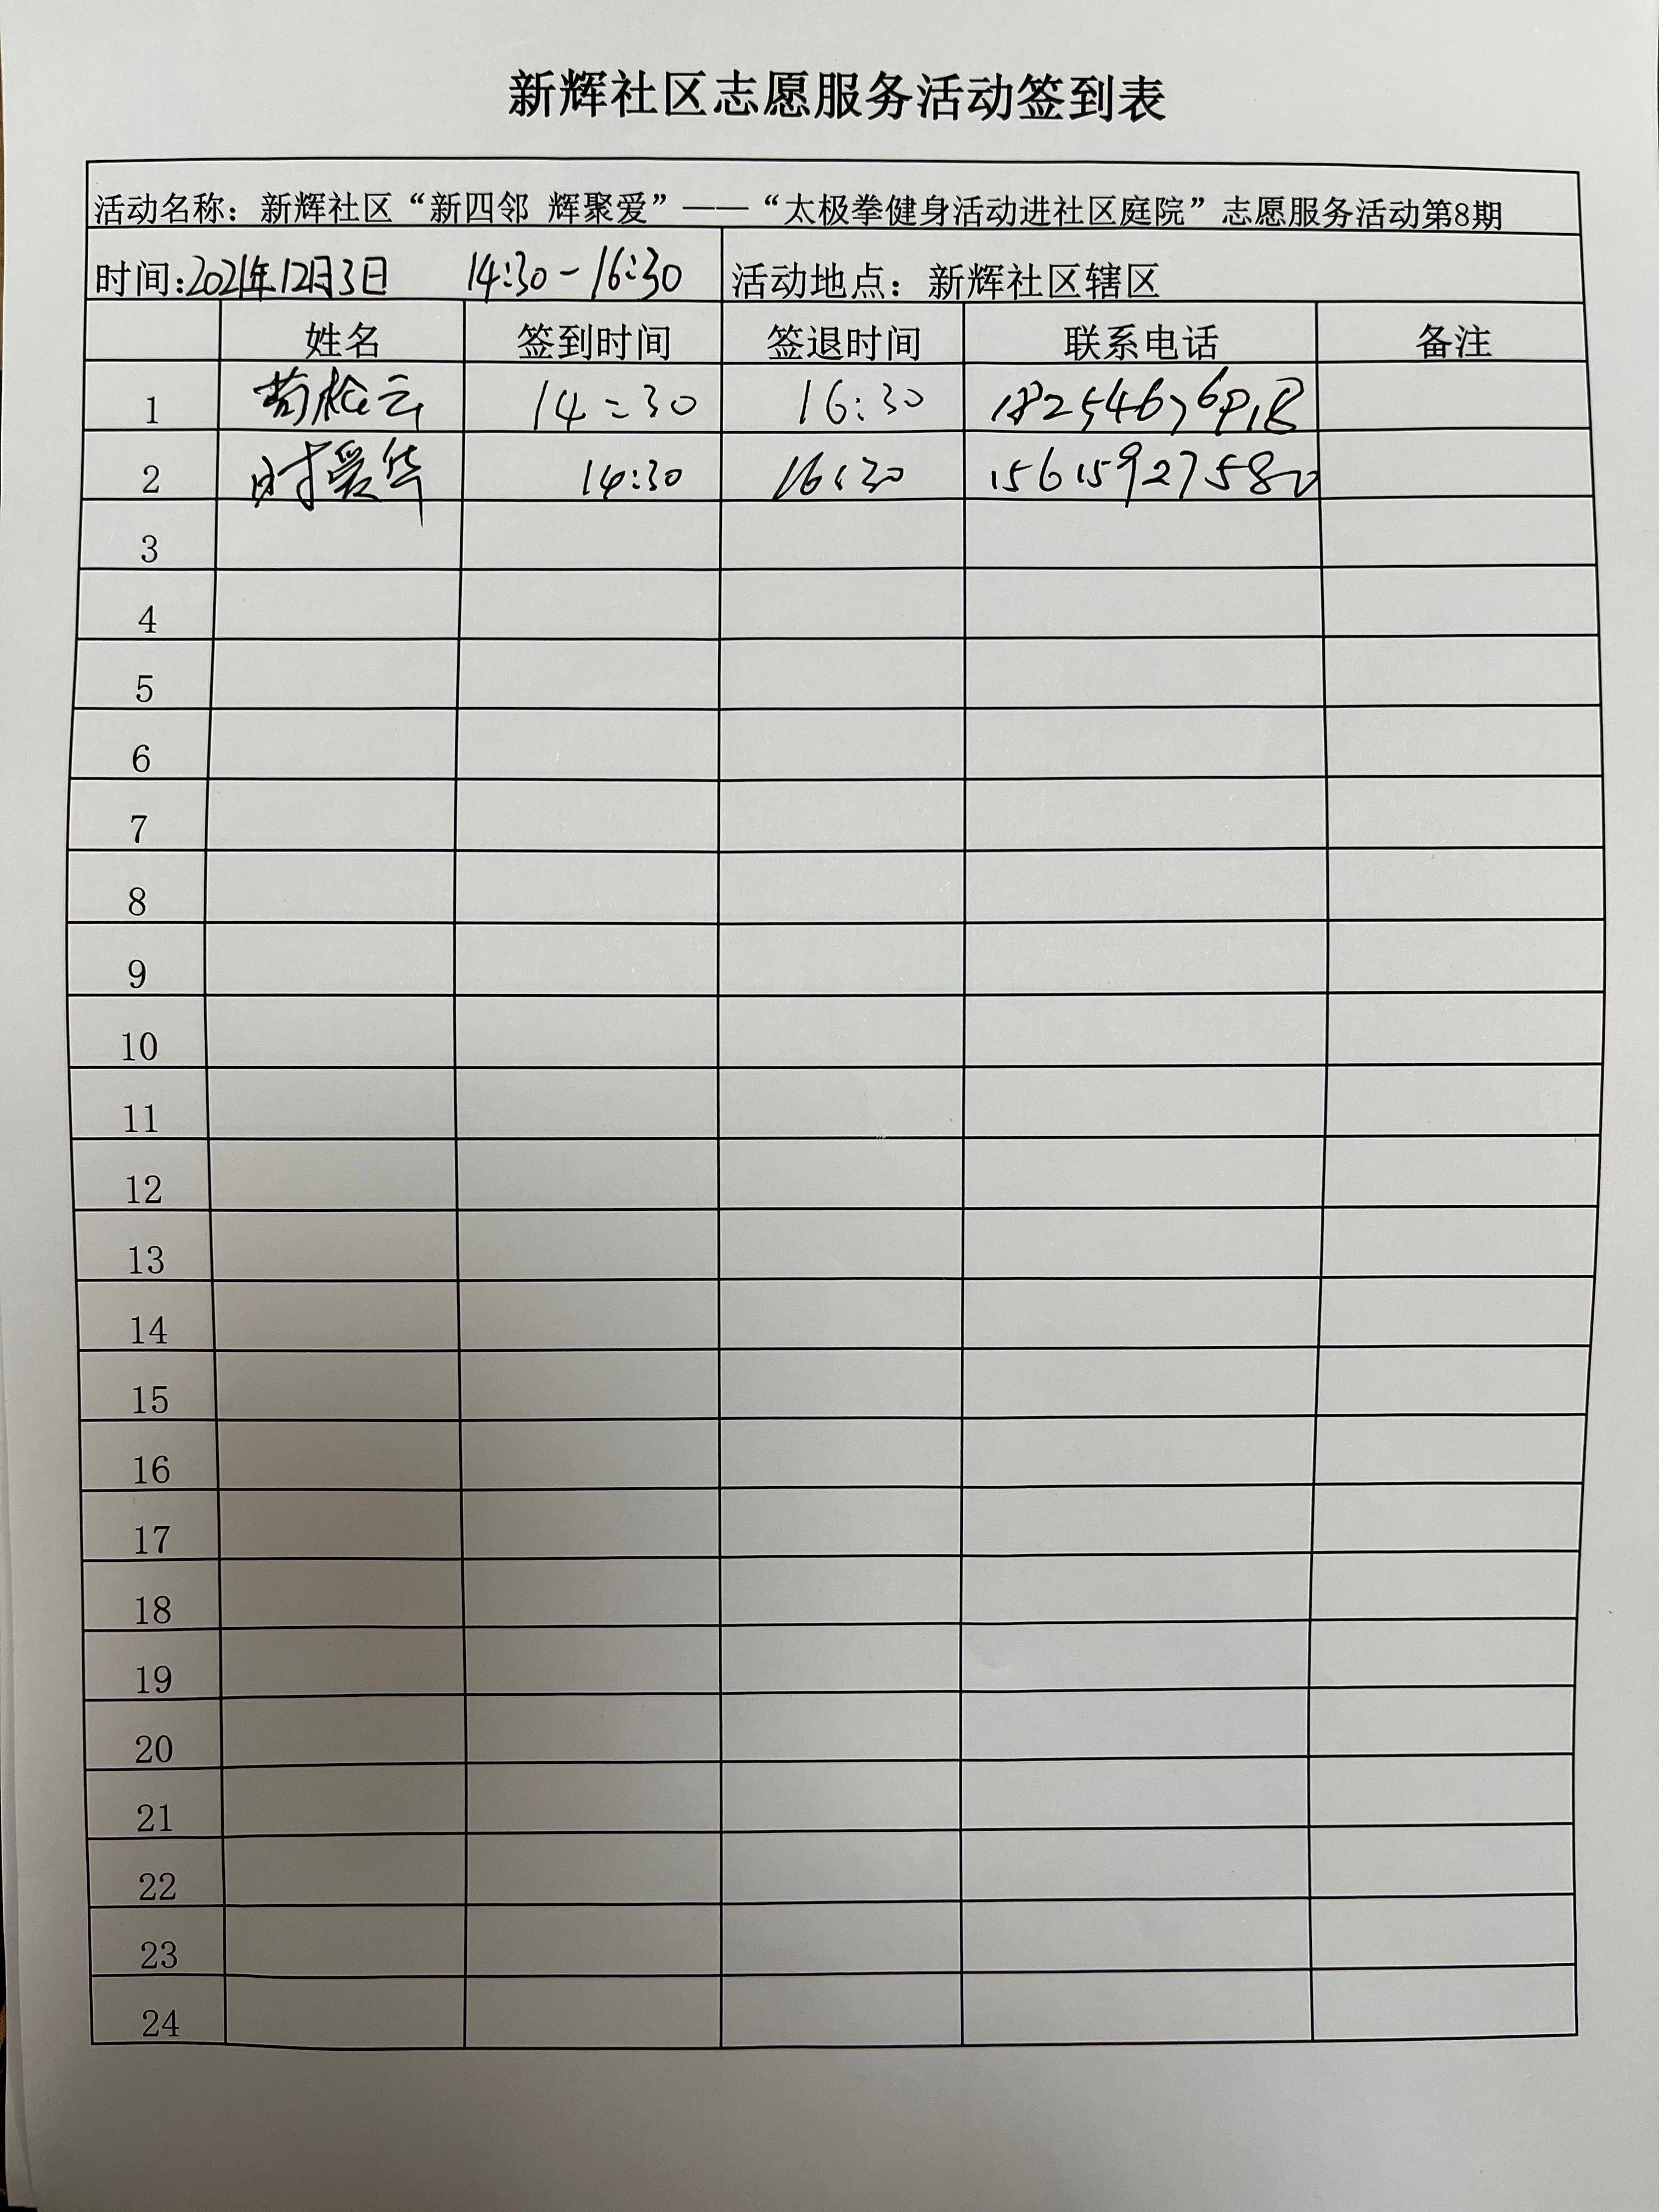 新辉社区志愿服务活动签到表
活动名称：新辉社区“新四邻 辉聚爱”——“太极拳健身活动进社区庭院”志愿服务活动第8期
时间:2021年12月3日 14:30-16:30 活动地点：新辉社区辖区
姓名 签到时间 签退时间 联系电话 备注
1 14:30 16:30
2 时爱华 14:30 16:30 15615927580
3
4
5
6
7
8
9
10
11
12
13
14
15
16
17
18
19
20
21
22
23
24